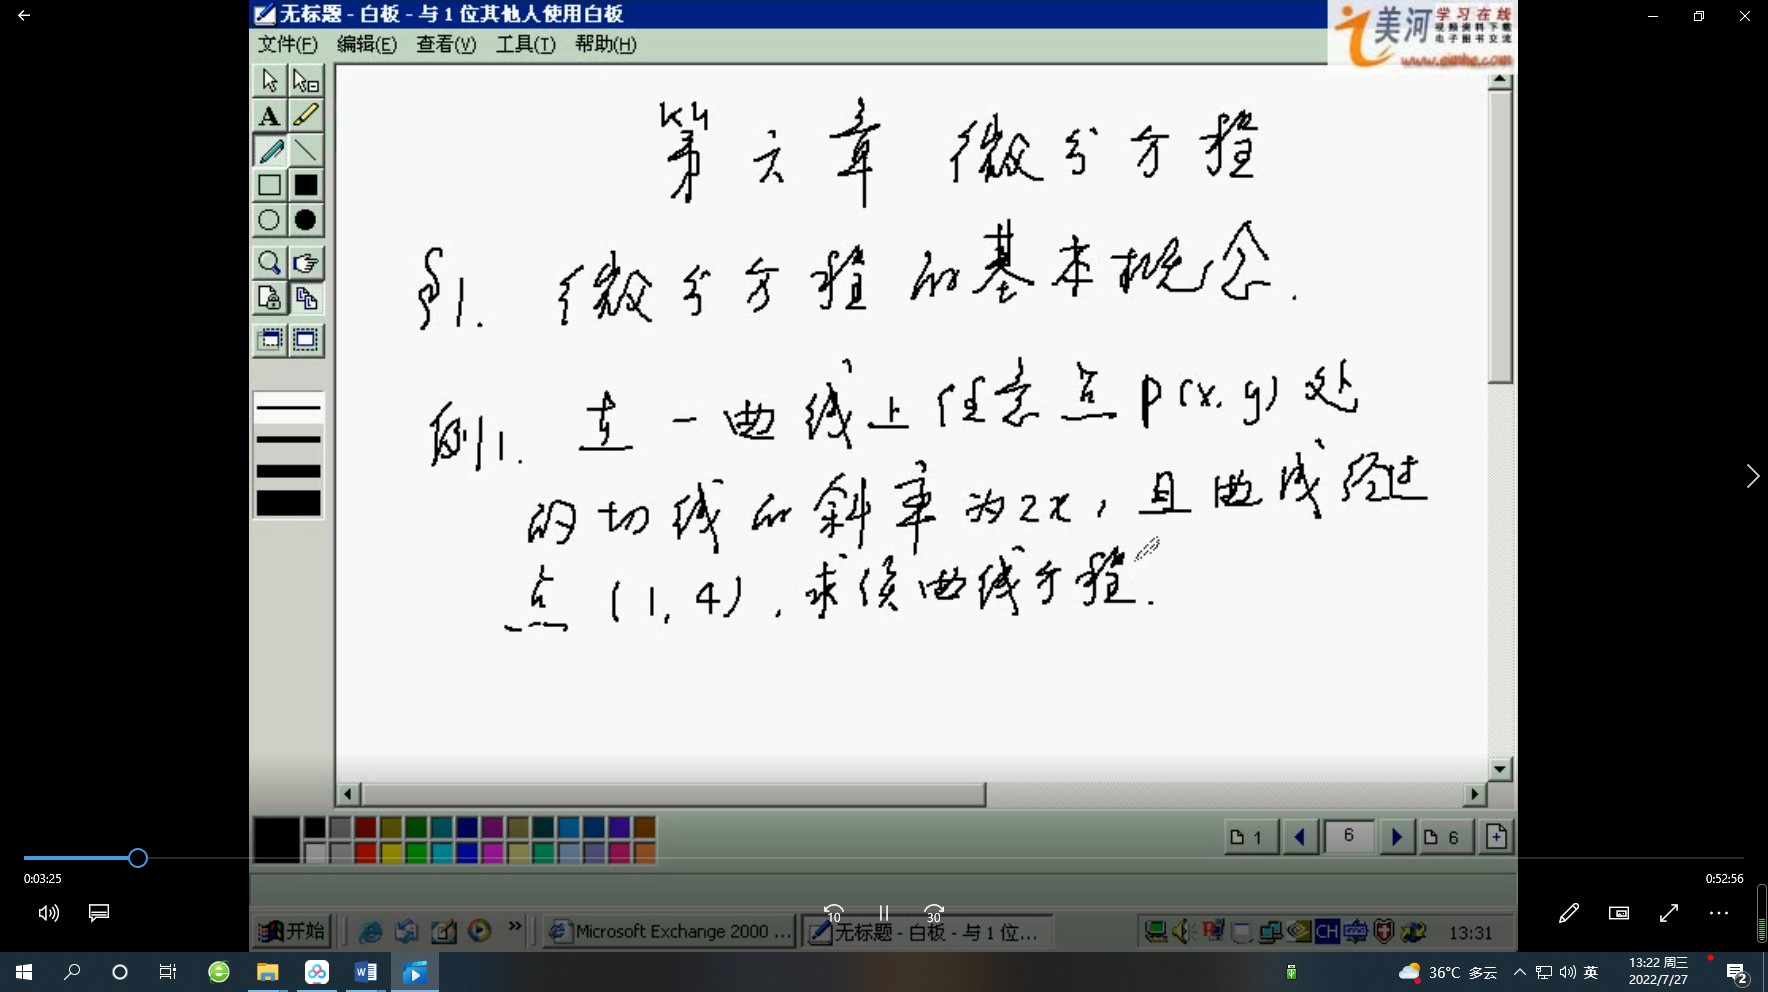 无标题 - 白板 - 与 1 位其他人使用白板
美河 学习在线
视频资料下载
电子图书交流
www.eimhe.com
文件(F) 编辑(E) 查看(V) 工具(T) 帮助(H)
A
第六章 微分方程
§1. 微分方程的基本概念.
例1. 一曲线上任意点P(x,y)处
的切线的斜率为2x,且曲线经过
点(1,4),求该曲线方程.
1 6 6
0:03:25 0:52:56
10 30
开始 » Microsoft Exchange 2000 ... 无标题 - 白板 - 与 1 位... CH 13:31
36°C 多云 英 13:22 周三
2022/7/27 2